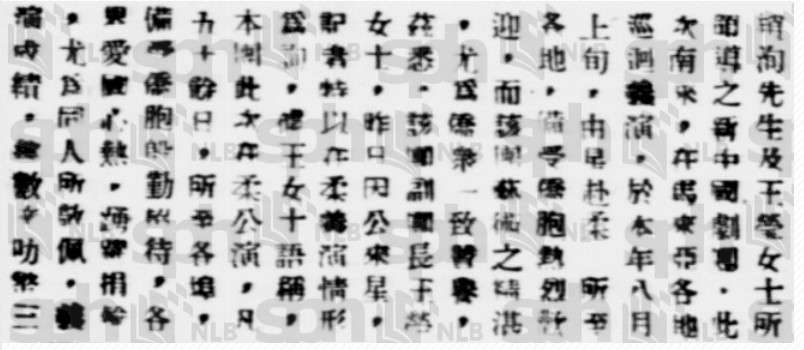 胡洵先生及王瑩女士所
領導之新中國劇團，此
次南來，在馬來亞各地
巡迴義演，於本年八月
上旬，由星赴柔 所至
各地，備受僑胞熱烈歡
迎，而該團藝術之精湛
，尤爲僑衆一致贊譽，
茲悉，該團副團長王瑩
女士，昨日因公來星，
記者特以在柔義演情形
爲詢，據王女士語稱，
本團此次在柔公演，凡
五十餘日，所至各埠，
備受僑胞殷勤招待，各
界愛國心熱，踴躍捐輸
，尤爲同人所欽佩，義
演成績，總數達叻幣三